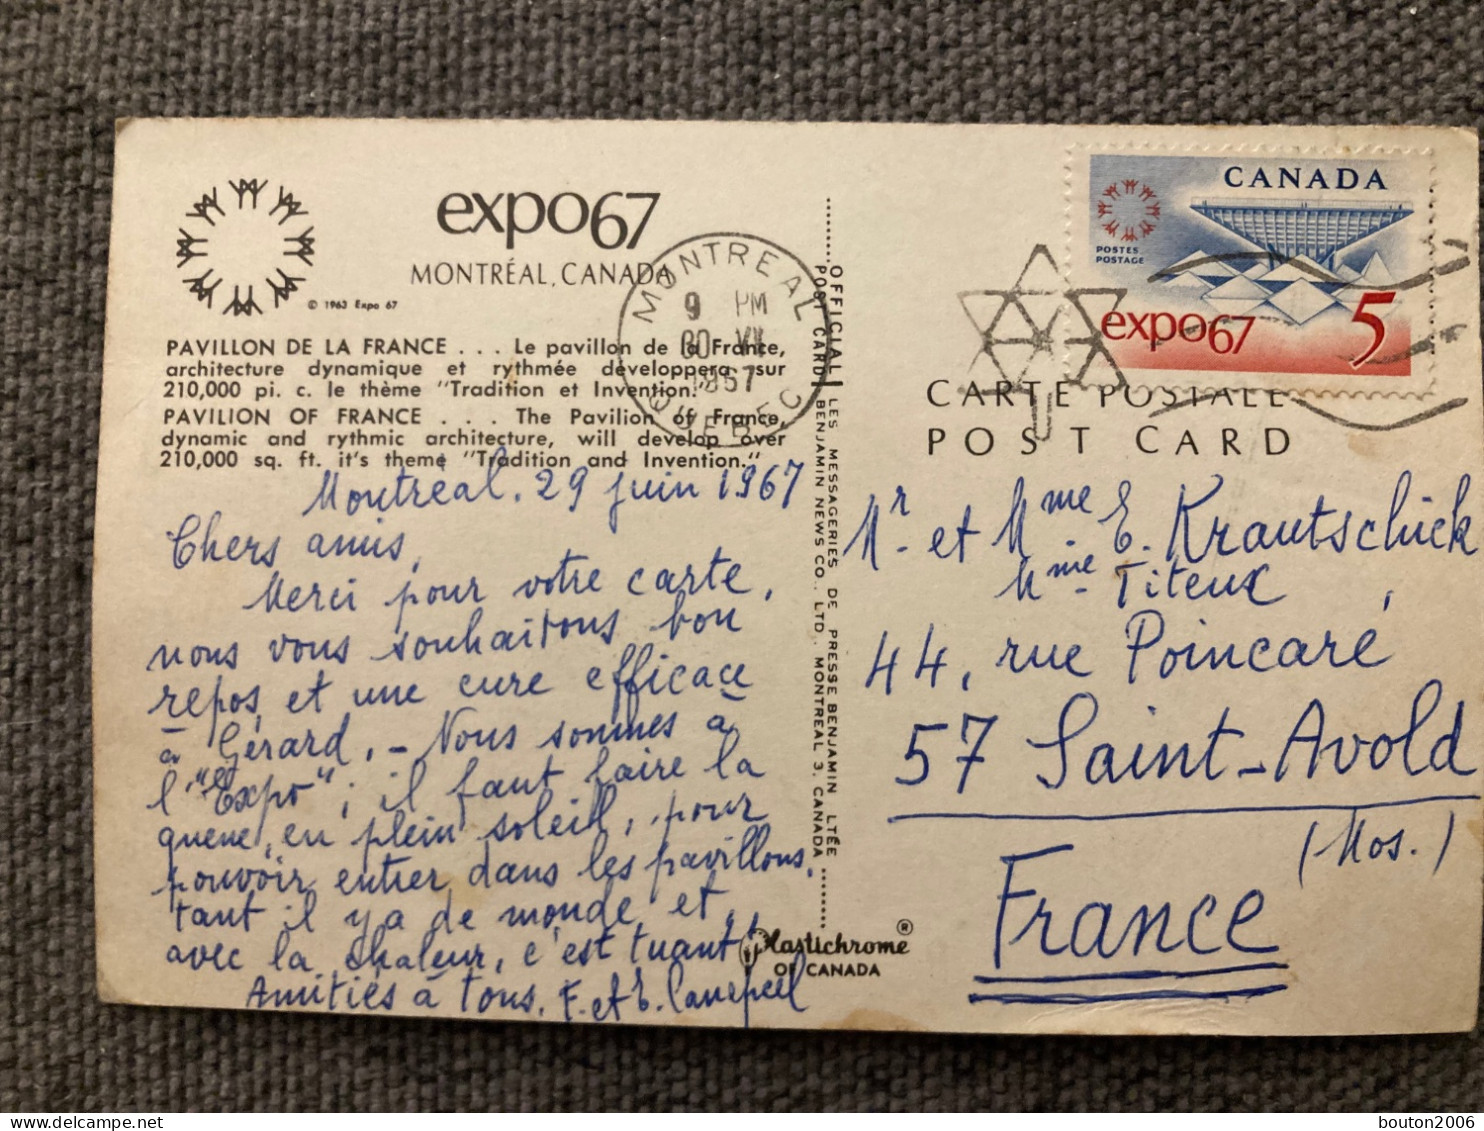 expo67
MONTRÉAL, CANADA
© 1963 Expo 67
PAVILLON DE LA FRANCE . . . Le pavillon de la France,
architecture dynamique et rythmée développera sur
210,000 pi. c. le thème "Tradition et Invention."
PAVILION OF FRANCE . . . The Pavilion of France,
dynamic and rythmic architecture, will develop over
210,000 sq. ft. it's theme "Tradition and Invention."
MONTREAL
9 PM
1967
QUEBEC
Montréal, 29 juin 1967
Chers amis,
Merci pour votre carte,
nous vous souhaitons bon
repos, et une cure efficace
à Gérard. – Nous sommes à
l' "Expo" ; il faut faire la
queue, en plein soleil, pour
pouvoir entrer dans les pavillons,
tant il y a de monde et,
avec la chaleur, c'est tuant!
Amitiés à tous. F. et E.
OFFICIAL LES MESSAGERIES DE PRESSE BENJAMIN LTÉE
POST CARD BENJAMIN NEWS CO., LTD. MONTREAL 3, CANADA
Plastichrome ®
OF CANADA
CANADA
POSTES
POSTAGE
expo67 5
CARTE POSTALE
POST CARD
Mr. et Mme E. Krautschick
Mme Titeux,
44, rue Poincaré
57 Saint-Avold
(Mos.)
France
bouton2006